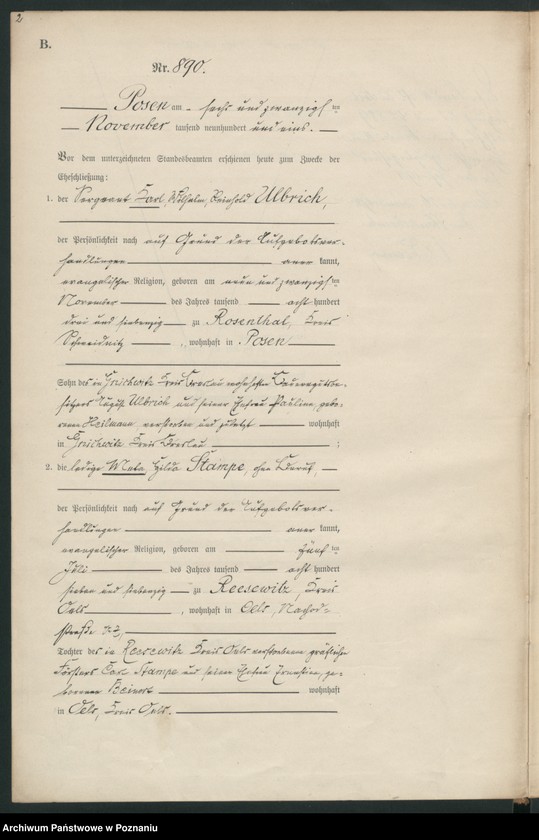 2
B.
Nr. 890.
Posen am sechs und zwanzigsten
November tausend neunhundert und eins.
Vor dem unterzeichneten Standesbeamten erschienen heute zum Zwecke der
Eheschließung:
1. der Sergeant Karl, Wilhelm, Reinhold Ulbrich,
der Persönlichkeit nach auf Grund der Aufgebotsver-
handlungen anerkannt,
evangelischer Religion, geboren am neun und zwanzigsten
November des Jahres tausend achthundert
drei und siebenzig zu Rosenthal, Kreis
Schweidnitz, wohnhaft in Posen
Sohn des in Gnichwitz Kreis Breslau wohnhaften Bauergutsbe-
sitzers August Ulbrich und seiner Ehefrau Pauline, gebo-
renen Heilmann, verstorben und zuletzt wohnhaft
in Gnichwitz Kreis Breslau;
2. die ledige Meta, Hilda Stampe, ohne Beruf,
der Persönlichkeit nach auf Grund der Aufgebotsver-
handlungen anerkannt,
evangelischer Religion, geboren am fünften
Juli des Jahres tausend achthundert
sieben und siebenzig zu Reesewitz, Kreis
Oels, wohnhaft in Oels,
straße
Tochter des in Reesewitz Kreis Oels verstorbenen gräflichen
Försters Carl Stampe und seiner Ehefrau Ernestine, ge-
borenen wohnhaft
in Oels, Kreis Oels.
Archiwum Państwowe w Poznaniu